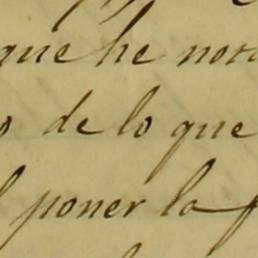 que he not
o de lo que
poner la